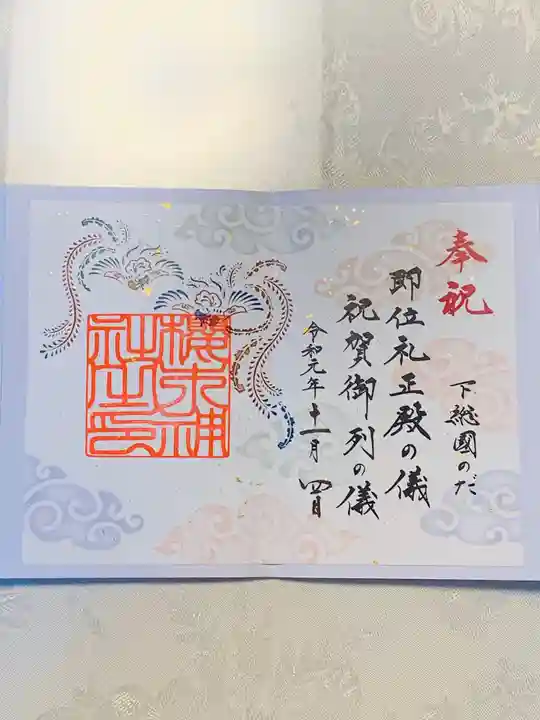 奉祝
下総國のだ
即位礼正殿の儀
祝賀御列の儀
令和元年十一月四日
櫻木神
社之印